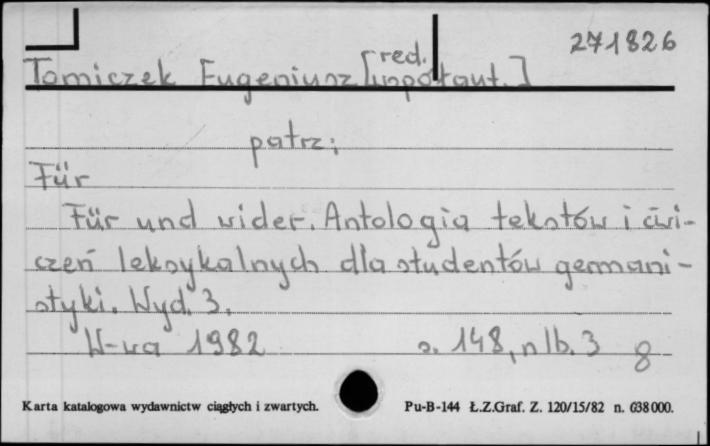 271826
Tomiczek Eugeniusz [red.
współaut.]
patrz:
Für
Für und wider. Antologia tekstów i ćwi-
czeń leksykalnych dla studentów germani-
styki. Wyd. 3.
W-wa 1982 s. 148, nlb. 3 8
Karta katalogowa wydawnictw ciągłych i zwartych. Pu-B-144 Ł.Z.Graf. Z. 120/15/82 n. 638000.